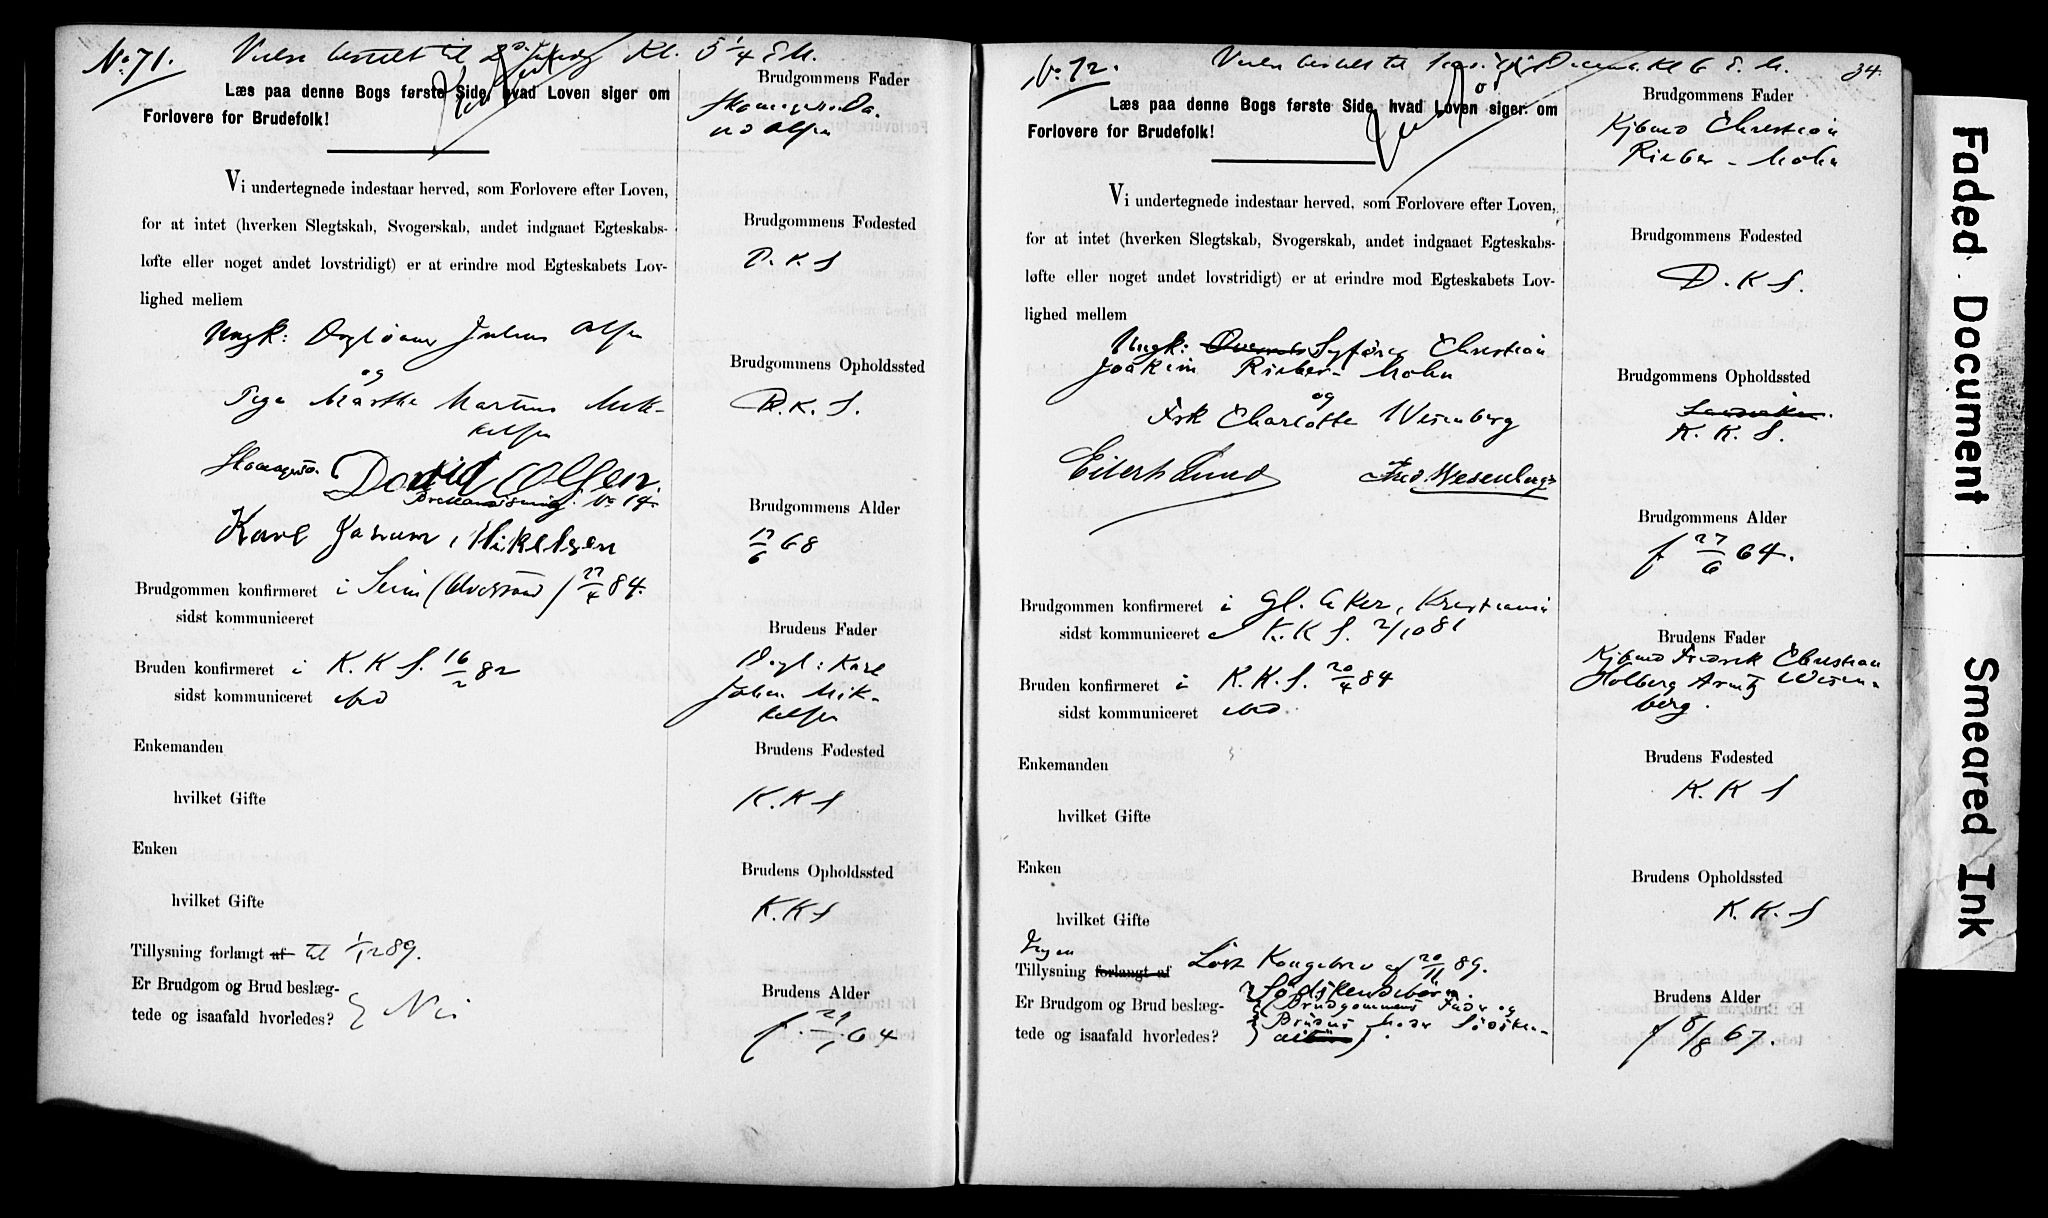 No 71. Vielse bestilt til 2 Juledag Kl. 5 1/4 E.M.
Læs paa denne Bogs første Side, hvad Loven siger om
Forlovere for Brudefolk!
Vi undertegnede indestaar herved, som Forlovere efter Loven,
for at intet (hverken Slegtskab, Svogerskab, andet indgaaet Egteskabs-
løfte eller noget andet lovstridigt) er at erindre mod Egteskabets Lov-
lighed mellem
Ungk: Julius Olsen
og
Pige Marthe Martine Mik-
kelsen
David Olsen.
No 14.
Karl Mikelsen
Brudgommen konfirmeret i Seim 27/4 84.
sidst kommuniceret
Bruden konfirmeret i K. K S. 16/2 82
sidst kommuniceret
Enkemanden
hvilket Gifte
Enken
hvilket Gifte
Tillysning forlangt af til 1/12 89.
Er Brudgom og Brud beslæg-
tede og isaafald hvorledes? Nei
Brudgommens Fader
Da-
vid Olsen
Brudgommens Fødested
D. K. S
Brudgommens Opholdssted
D. K. S.
Brudgommens Alder
17/6 68
Brudens Fader
Dagl: Karl
Johan Mik-
kelsen
Brudens Fødested
K. K S
Brudens Opholdssted
K. K S
Brudens Alder
f. 29/1 64
No 72. Vielse bestilt til Decemb. Kl 6 E. M. 34
Læs paa denne Bogs første Side, hvad Loven siger om
Forlovere for Brudefolk!
Vi undertegnede indestaar herved, som Forlovere efter Loven,
for at intet (hverken Slegtskab, Svogerskab, andet indgaaet Egteskabs-
løfte eller noget andet lovstridigt) er at erindre mod Egteskabets Lov-
lighed mellem
Ungk: Sagfører Christian
Joakim Rieber-Mohn
og
Frk Charlotte Wesenberg
Eilert Lund Fred. Wesenberg
Brudgommen konfirmeret i Gl. Aker, Kristiania
sidst kommuniceret K. K S. 2/10 81
Bruden konfirmeret i K. K. S. 20/4 84
sidst kommuniceret
Enkemanden
hvilket Gifte
Enken
hvilket Gifte
Ingen
Tillysning forlangt af Løst Kongebrev af 20/11 89.
Er Brudgom og Brud beslæg- Södskendebörn.
(Brudgommens Fader og
tede og isaafald hvorledes? Brudens Moder Södsken-
de
Brudgommens Fader
Kjbmd Christian
Rieber-Mohn
Brudgommens Fødested
D. K S.
Brudgommens Opholdssted
K. K. S.
Brudgommens Alder
f 27/6 64.
Brudens Fader
Kjbmd Fredrik Christian
Holberg Arentz Wesen-
berg.
Brudens Fødested
K. K S
Brudens Opholdssted
K. K. S
Brudens Alder
f 8/8 67.
Faded Document
Smeared Ink